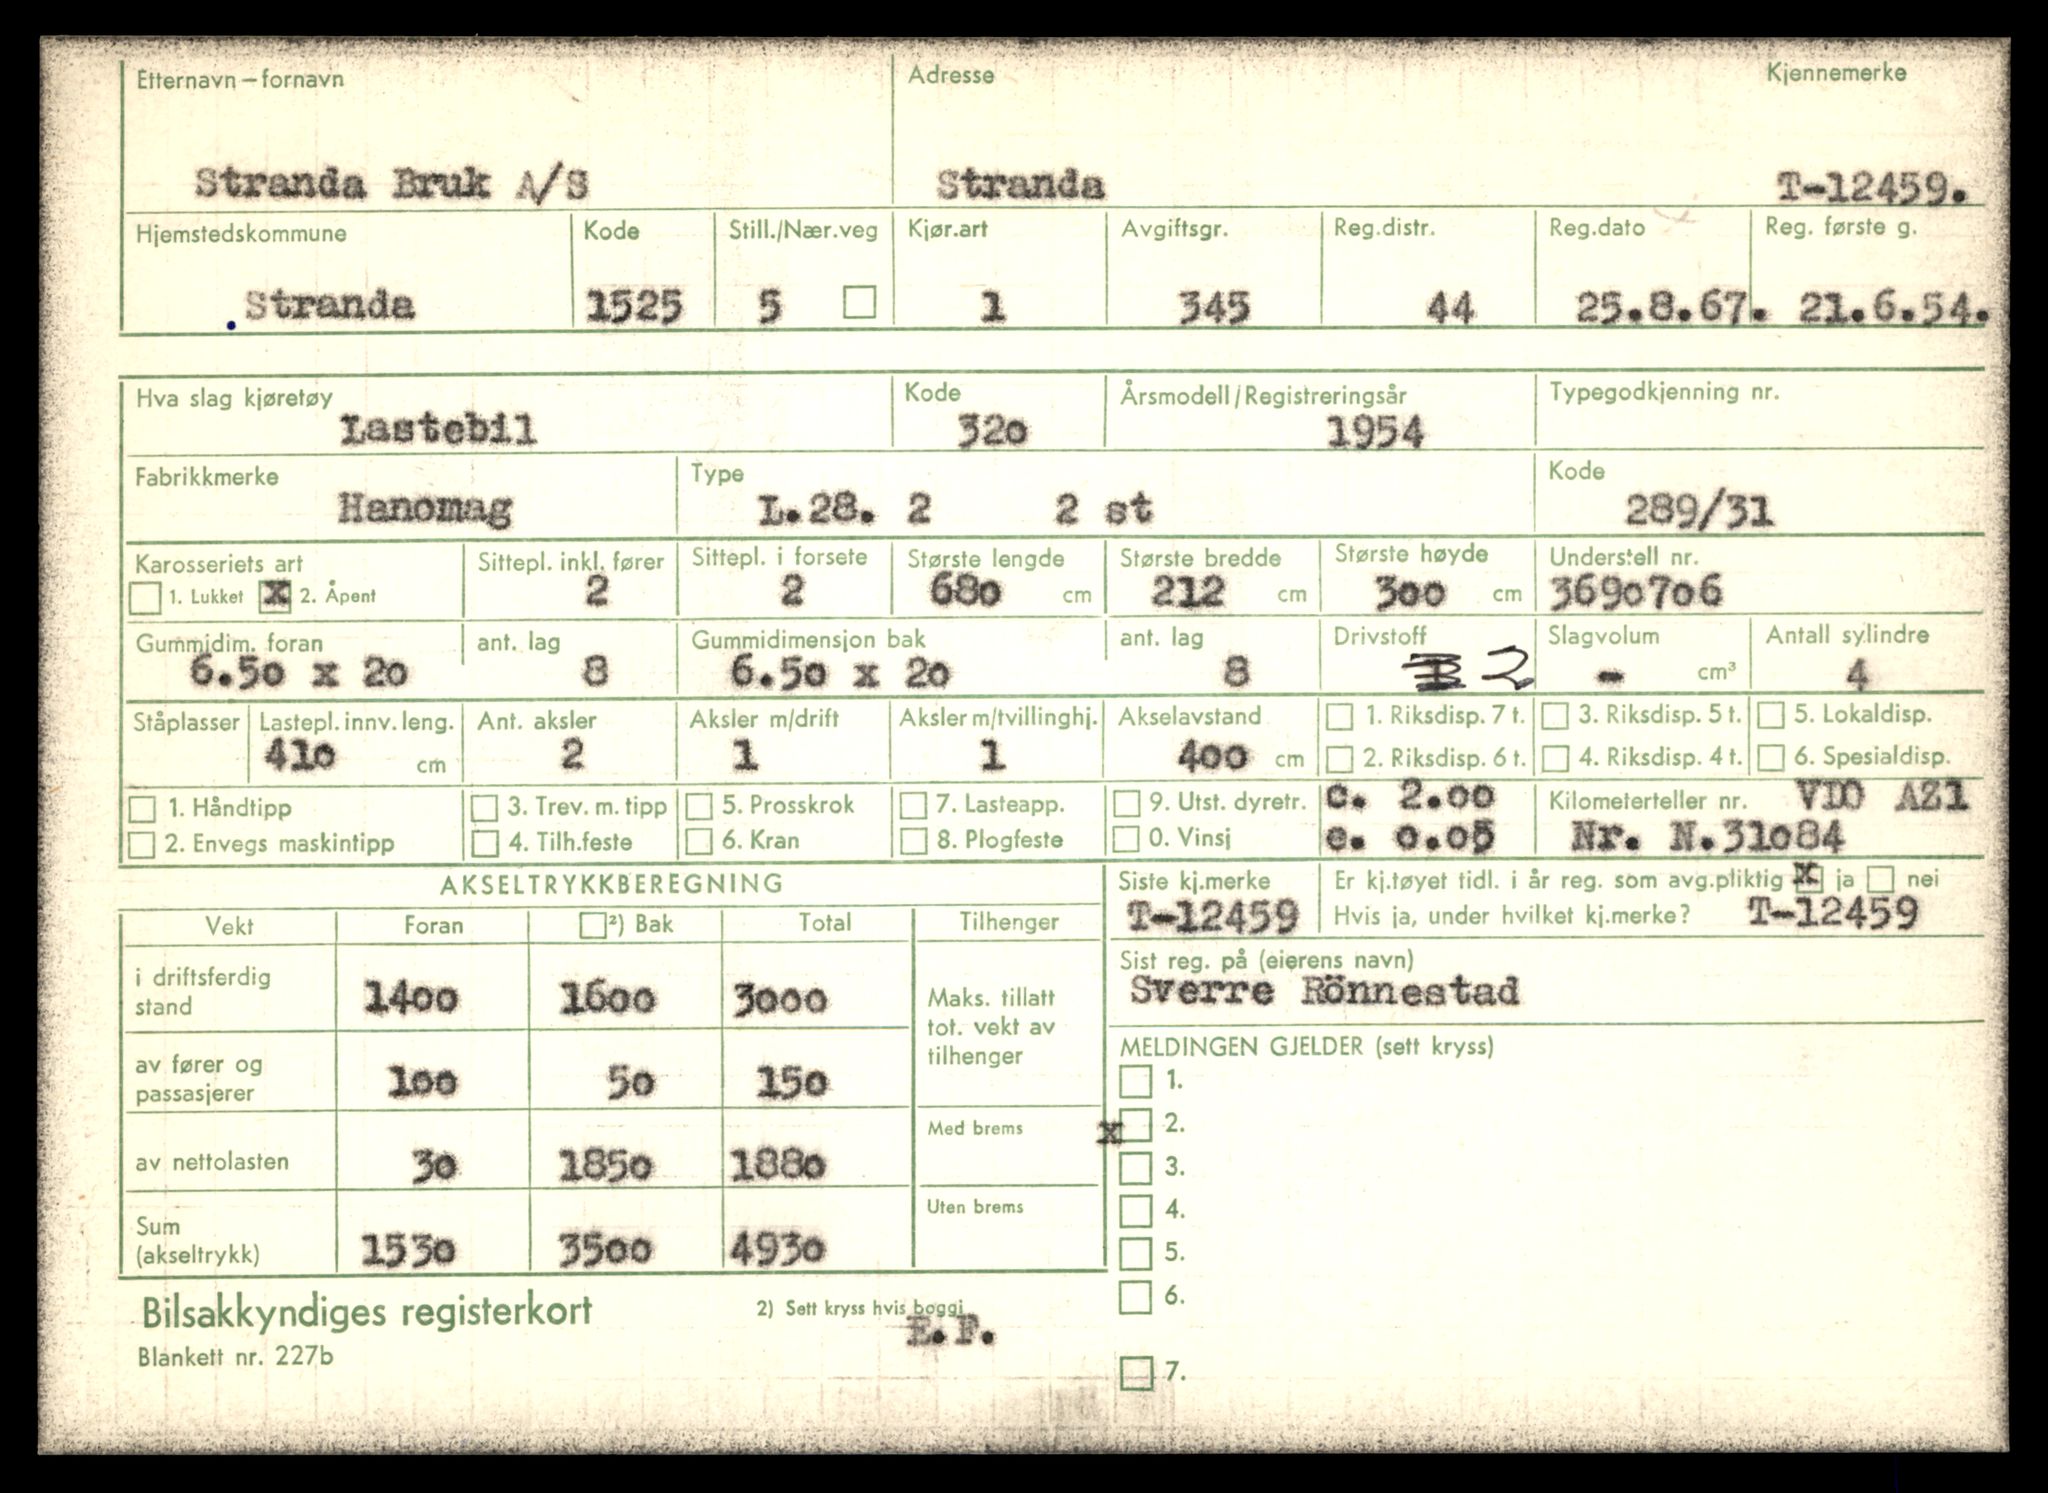 Etternavn – fornavn Adresse Kjennemerke
Stranda Bruk A/S Stranda T-12459.
Hjemstedskommune Kode Still./Nær.veg Kjør.art Avgiftsgr. Reg.distr. Reg.dato Reg. første g.
Stranda 1525 5 1 345 44 25.8.67. 21.6.54.
Hva slag kjøretøy Kode Årsmodell/Registreringsår Typegodkjenning nr.
Lastebil 320 1954
Fabrikkmerke Type Kode
Hanomag L.28. 2 2 st 289/31
Karosseriets art Sittepl. inkl. fører Sittepl. i forsete Største lengde Største bredde Største høyde Understell nr.
1. Lukket x 2. Åpent 2 2 680 cm 212 cm 300 cm 3690706
Gummidim. foran ant. lag Gummidimensjon bak ant. lag Drivstoff Slagvolum Antall sylindre
6.50 x 20 8 6.50 x 20 8 2 - cm³ 4
Ståplasser Lastepl. innv. leng. Ant. aksler Aksler m/drift Aksler m/tvillinghj. Akselavstand 1. Riksdisp. 7 t. 3. Riksdisp. 5 t. 5. Lokaldisp.
410 cm 2 1 1 400 cm 2. Riksdisp. 6 t. 4. Riksdisp. 4 t. 6. Spesialdisp.
1. Håndtipp 3. Trev. m. tipp 5. Prosskrok 7. Lasteapp. 9. Utst. dyretr. c. 2.00 Kilometerteller nr. VDO AZ1
2. Envegs maskintipp 4. Tilh.feste 6. Kran 8. Plogfeste 0. Vinsj e. 0.05 Nr. N.31084
AKSELTRYKKBEREGNING Siste kj.merke Er kj.tøyet tidl. i år reg. som avg.pliktig x ja nei
T-12459 Hvis ja, under hvilket kj.merke? T-12459
Vekt Foran ²) Bak Total Tilhenger
Sist reg. på (eierens navn)
Sverre Rönnestad
i driftsferdig
stand 1400 1600 3000
Maks. tillatt
tot. vekt av
tilhenger
MELDINGEN GJELDER (sett kryss)
av fører og
passasjerer 100 50 150
1.
Med brems x 2.
av nettolasten 30 1850 1880
3.
Uten brems 4.
Sum
(akseltrykk) 1530 3500 4930
5.
6.
Bilsakkyndiges registerkort 2) Sett kryss hvis boggi
E.F.
Blankett nr. 227b
7.